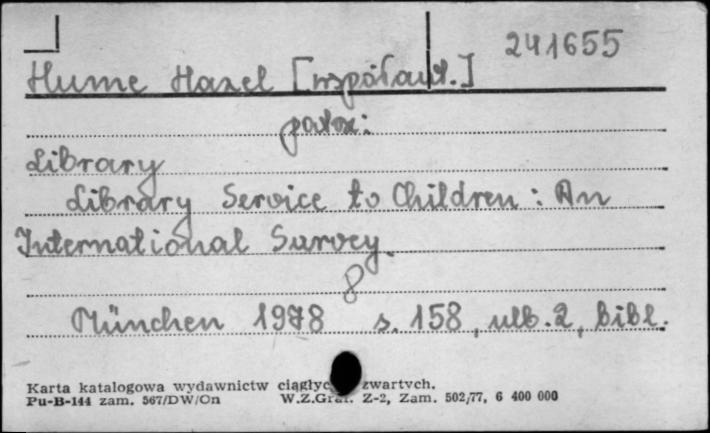 241655
Hume Hazel [współaut.]
patrz:
Library
Library Service to Children : An
International Survey.
8
München 1978 s. 158, ulb. 2, bibl.
Karta katalogowa wydawnictw ciągłyc zwartych.
Pu-B-144 zam. 567/DW/On W.Z.Graf. Z-2, Zam. 502/77, 6 400 000